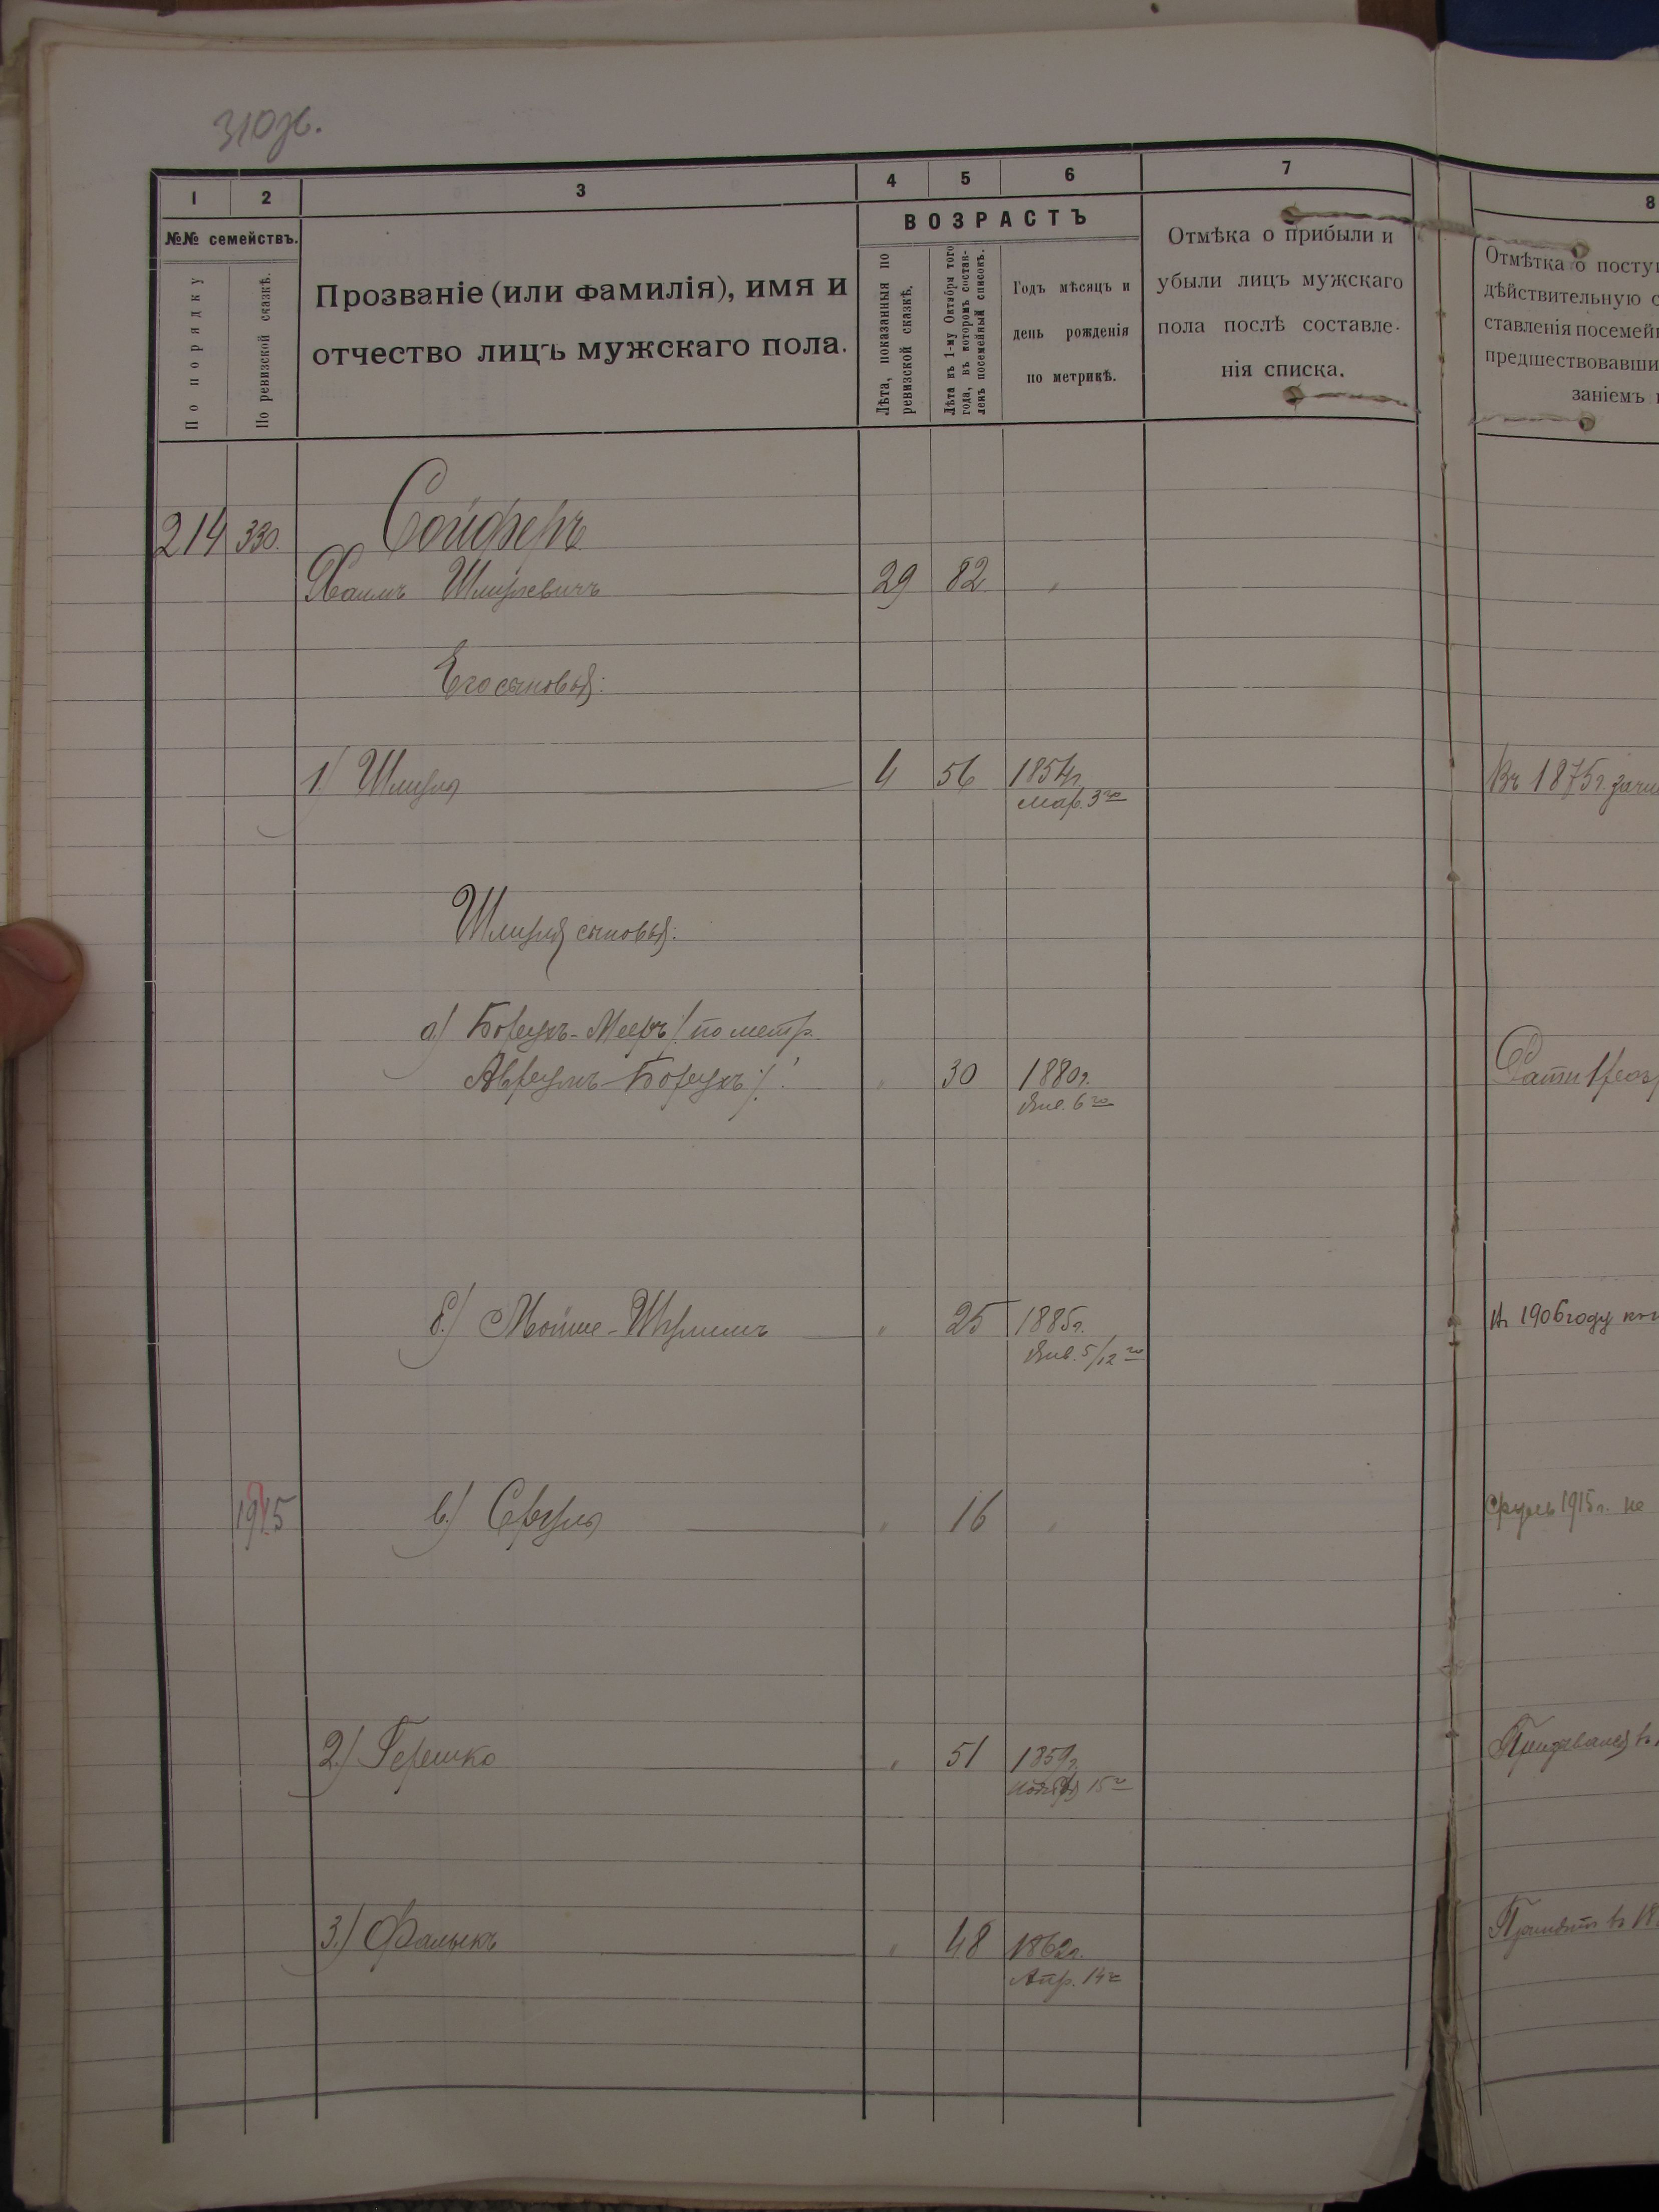 310об.
1 2 3 4 5 6 7 8
№№ семействъ.
По порядку
По ревизской сказкѣ.
Прозваніе (или фамилія), имя и
отчество лицъ мужскаго пола.
ВОЗРАСТЪ
Лѣта, показанныя по
ревизской сказкѣ.
Лѣта къ 1-му Октября того
года, въ которомъ состав-
ленъ посемейный списокъ.
Годъ мѣсяцъ и
день рожденія
по метрикѣ.
Отмѣка о прибыли и
убыли лицъ мужскаго
пола послѣ составле-
нія списка.
Отмѣтка о посту
дѣйствительную с
ставленія посемей
предшествовавши
заніемъ
214 330. Сойферъ
Хаимъ Шмулевичъ 29 82 "
Его сыновья:
1) Шмуля 4 56 1854г. Въ 1875г. зачи
Мар. 3го
Шмуля сыновья:
а) Борухъ-Мееръ /: по метр.
Аврумъ-Борухъ :/ " 30 1880г.
Янв. 6го
б) Мойше-Шулимъ " 25 1885г. Въ 1906 году
Янв. 5/12го
1915 в) Сруля " 16 " Сруль 1915г. не
2) Гершко " 51 1859г. Призывался въ
Ноября 15го
3) Фалыкъ " 48 1862г. Принятъ въ 18
Апр. 14го